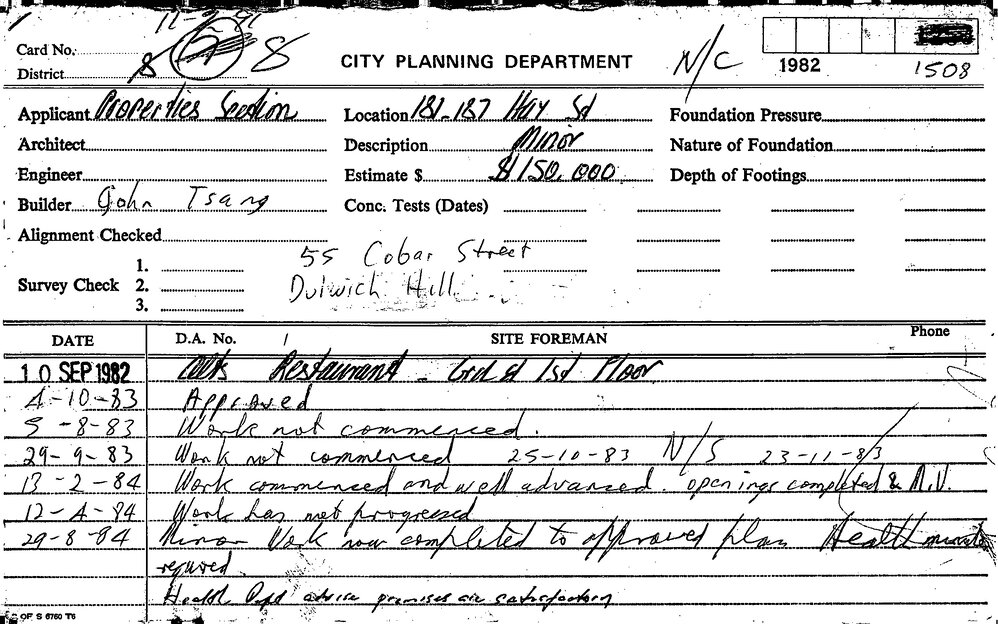 11-2-91
Card No. 8 8
District
CITY PLANNING DEPARTMENT N/C 1982 1508
Applicant Properties Section Location 181-187 Hay St Foundation Pressure
Architect Description Minor Nature of Foundation
Engineer Estimate $ $150,000 Depth of Footings
Builder John Tsang Conc. Tests (Dates)
Alignment Checked
55 Cobar Street
Survey Check 1. 2. 3. Dulwich Hill
DATE D.A. No. SITE FOREMAN Phone
10 SEP 1982 Alts Restaurant - Grd & 1st Floor
4-10-83 Approved
5-8-83 Work not commenced.
29-9-83 Work not commenced 25-10-83 N/S 23-11-83
13-2-84 Work commenced and well advanced. openings completed &
12-4-84 Work has not progressed
29-8-84 Minor Work now completed to approved plan Health minute
required.
Health Dept advise premises are satisfactory
C OF S 6760 T6